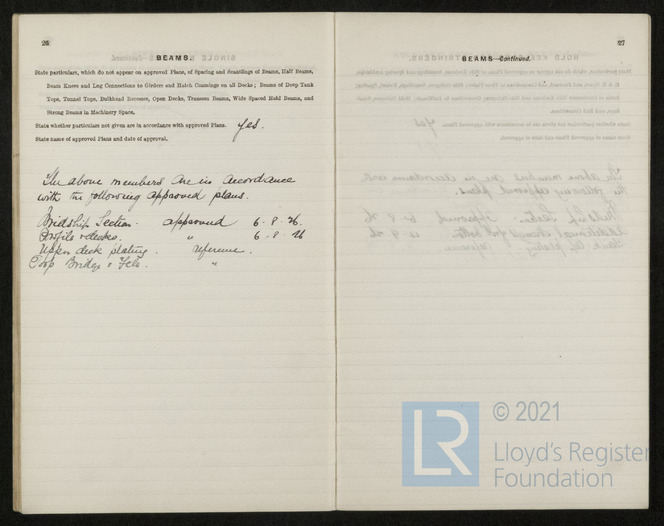 26
BEAMS.
State particulars, which do not appear on approved Plans, of Spacing and Scantlings of Beams, Half Beams,
Beam Knees and Lug Connections to Girders and Hatch Coamings on all Decks; Beams of Deep Tank
Tops, Tunnel Tops, Bulkhead Recesses, Open Decks, Transom Beams, Wide Spaced Hold Beams, and
Strong Beams in Machinery Space.
State whether particulars not given are in accordance with approved Plans. Yes.
State name of approved Plans and date of approval.
The above members are in accordance
with the following approved plans.
Midship Section. approved 6 - 8 - 26.
Profile & decks. " 6 - 8 - 26
Upper deck plating. reference.
Poop Bridge & Fcle. "
27
BEAMS—Continued.
LR
© 2021
Lloyd's Register
Foundation